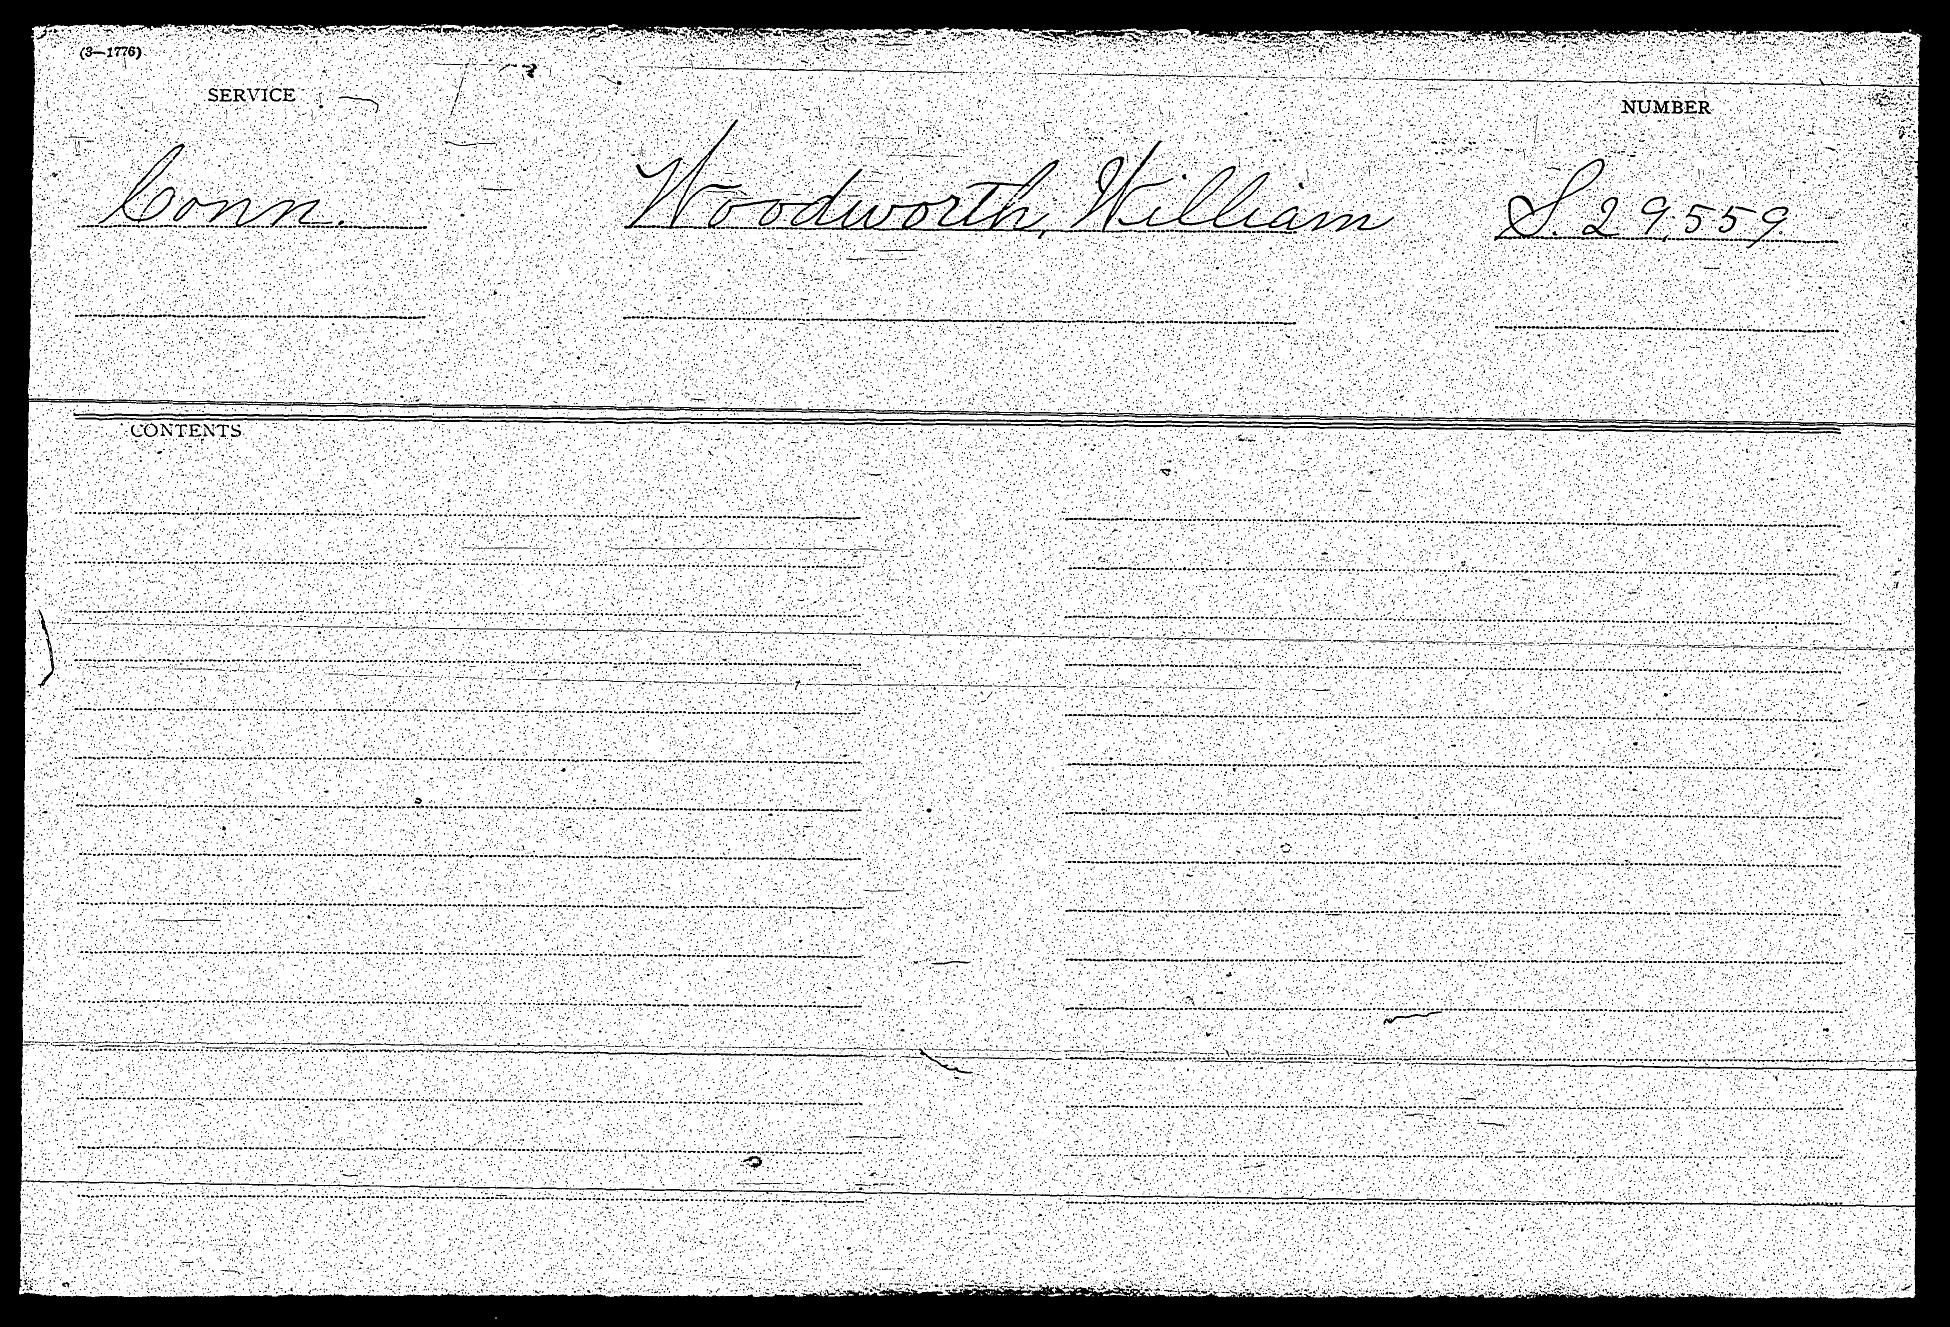 (3—1776)
SERVICE NUMBER
Conn. Woodworth, William S. 29,559.
CONTENTS